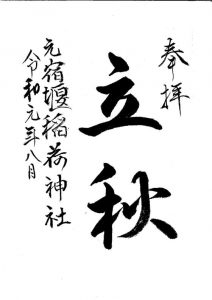 奉拝
立秋
元宿堰稲荷神社
令和元年八月